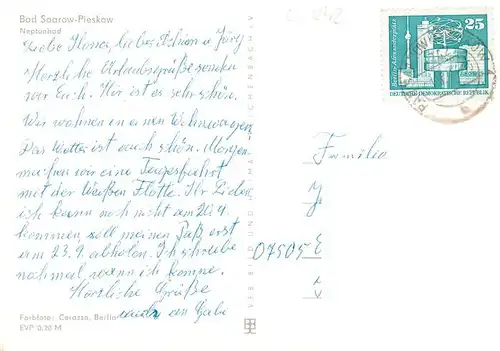 Bad Saarow-Pieskow
Neptunbad
Liebe Ilona, liebes Achim u Jörg
Herzliche Urlaubsgrüße senden
wir Euch. Hier ist es sehr schön.
Wir wohnen in einen Wohnwagen.
Das Wetter ist auch schön. Morgen
machen wir eine Tagesfahrt
mit der Weißen Flotte. Ihr Lieben
ich kann noch nicht am 20.9.
kommen, soll meinen Paß erst
am 23.9. abholen. Ich schreibe
nochmal, wann ich komme.
Herzliche Grüße
auch an Gabi
Farbfoto: Cerazza, Berlin
EVP 0,20 M
VEB BILD UND HEIMAT REICHENBACH I.V.
25
Berlin-Alexanderplatz
DEUTSCHE DEMOKRATISCHE REPUBLIK
Familie
07505